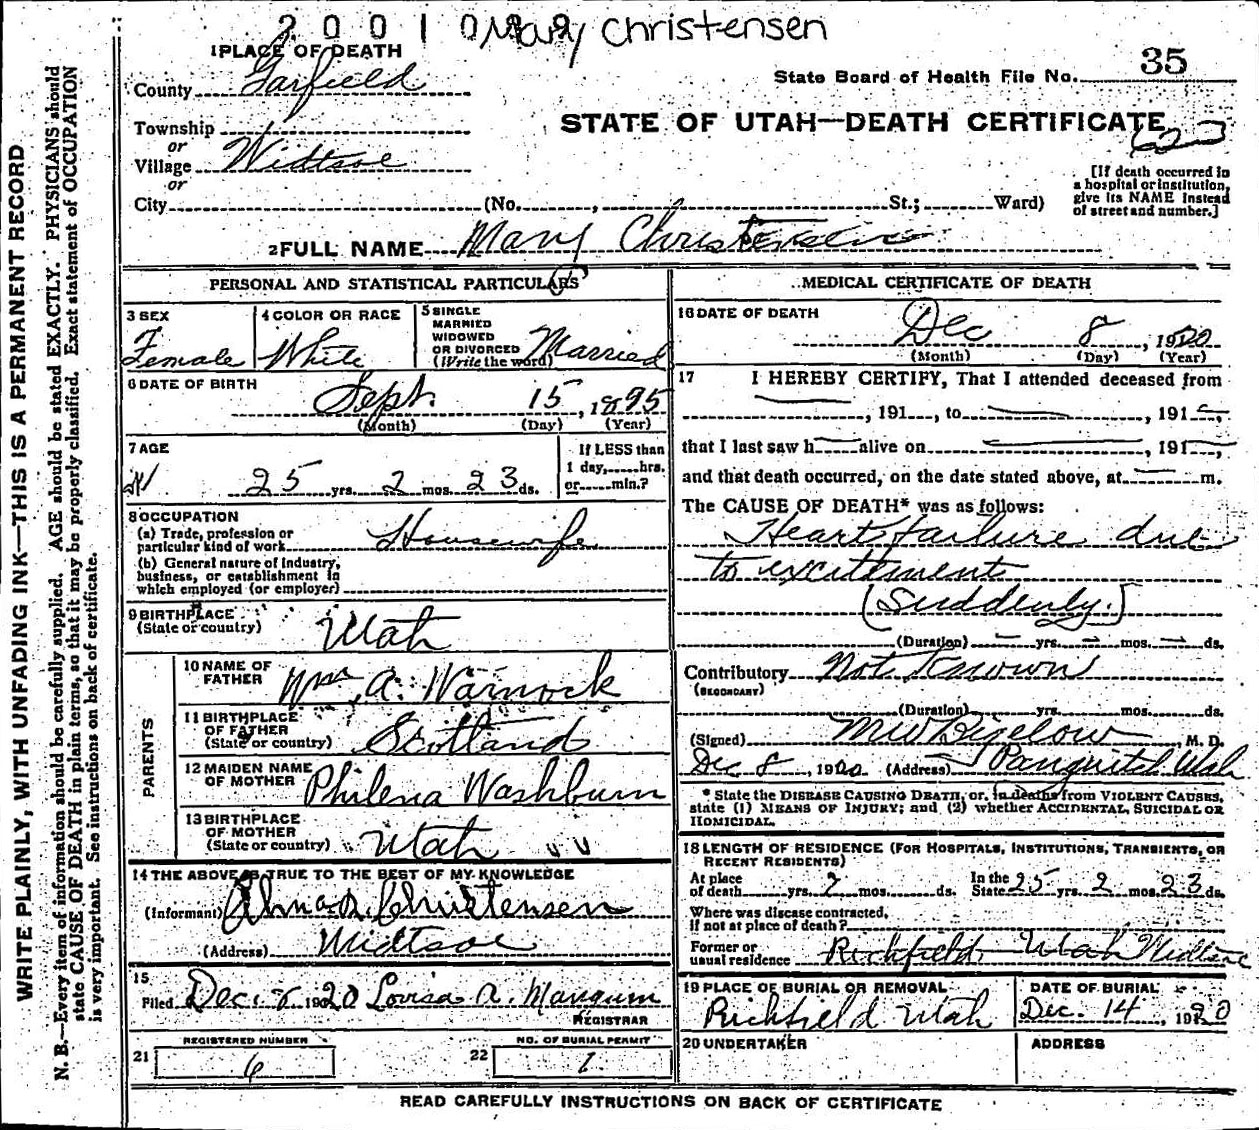 2001090 Mary Christensen
1 PLACE OF DEATH
County Garfield
State Board of Health File No. 35
Township
STATE OF UTAH—DEATH CERTIFICATE
or
Village Widtsoe
or
City (No. , St.; Ward)
[If death occurred in
a hospital or institution,
give its NAME instead
of street and number.]
2 FULL NAME Mary Christensen
PERSONAL AND STATISTICAL PARTICULARS
3 SEX
Female
4 COLOR OR RACE
White
5 SINGLE
MARRIED
WIDOWED
OR DIVORCED
(Write the word) Married
6 DATE OF BIRTH
Sept. 15, 1895
(Month) (Day) (Year)
7 AGE
25 yrs. 2 mos. 23 ds.
If LESS than
1 day, hrs.
or min.?
8 OCCUPATION
(a) Trade, profession or
particular kind of work Housewife
(b) General nature of industry,
business, or establishment in
which employed (or employer)
9 BIRTHPLACE
(State or country) Utah
PARENTS
10 NAME OF
FATHER Wm. A. Warnock
11 BIRTHPLACE
OF FATHER
(State or country) Scotland
12 MAIDEN NAME
OF MOTHER Philena Washburn
13 BIRTHPLACE
OF MOTHER
(State or country) Utah
14 THE ABOVE IS TRUE TO THE BEST OF MY KNOWLEDGE
(Informant) Christensen
(Address) Widtsoe
15
Filed Dec. 1920 Lovisa A. Mangum
REGISTRAR
REGISTERED NUMBER
21 6
NO. OF BURIAL PERMIT
22 1
MEDICAL CERTIFICATE OF DEATH
16 DATE OF DEATH
Dec 8, 1920
(Month) (Day) (Year)
17 I HEREBY CERTIFY, That I attended deceased from
, 191 , to , 191 ,
that I last saw h alive on , 191 ,
and that death occurred, on the date stated above, at m.
The CAUSE OF DEATH* was as follows:
Heart failure due
to excitement
(Suddenly.)
(Duration) yrs. mos. ds.
Contributory Not Known
(SECONDARY)
(Duration) yrs. mos. ds.
(Signed) M W Bigelow, M. D.
Dec 8, 1920 (Address) Panguitch Utah
* State the DISEASE CAUSING DEATH, or, in deaths from VIOLENT CAUSES,
state (1) MEANS OF INJURY; and (2) whether ACCIDENTAL, SUICIDAL OR
HOMICIDAL.
18 LENGTH OF RESIDENCE (FOR HOSPITALS, INSTITUTIONS, TRANSIENTS, OR
RECENT RESIDENTS)
At place
of death yrs. 2 mos. ds.
In the
State 25 yrs. 2 mos. 23 ds.
Where was disease contracted,
if not at place of death?
Former or
usual residence Richfield, Utah Widtsoe
19 PLACE OF BURIAL OR REMOVAL
Richfield Utah
DATE OF BURIAL
Dec. 14, 1920
20 UNDERTAKER
ADDRESS
READ CAREFULLY INSTRUCTIONS ON BACK OF CERTIFICATE
WRITE PLAINLY, WITH UNFADING INK—THIS IS A PERMANENT RECORD
N. B.—Every item of information should be carefully supplied. AGE should be stated EXACTLY. PHYSICIANS should
state CAUSE OF DEATH in plain terms, so that it may be properly classified. Exact statement of OCCUPATION
is very important. See instructions on back of certificate.